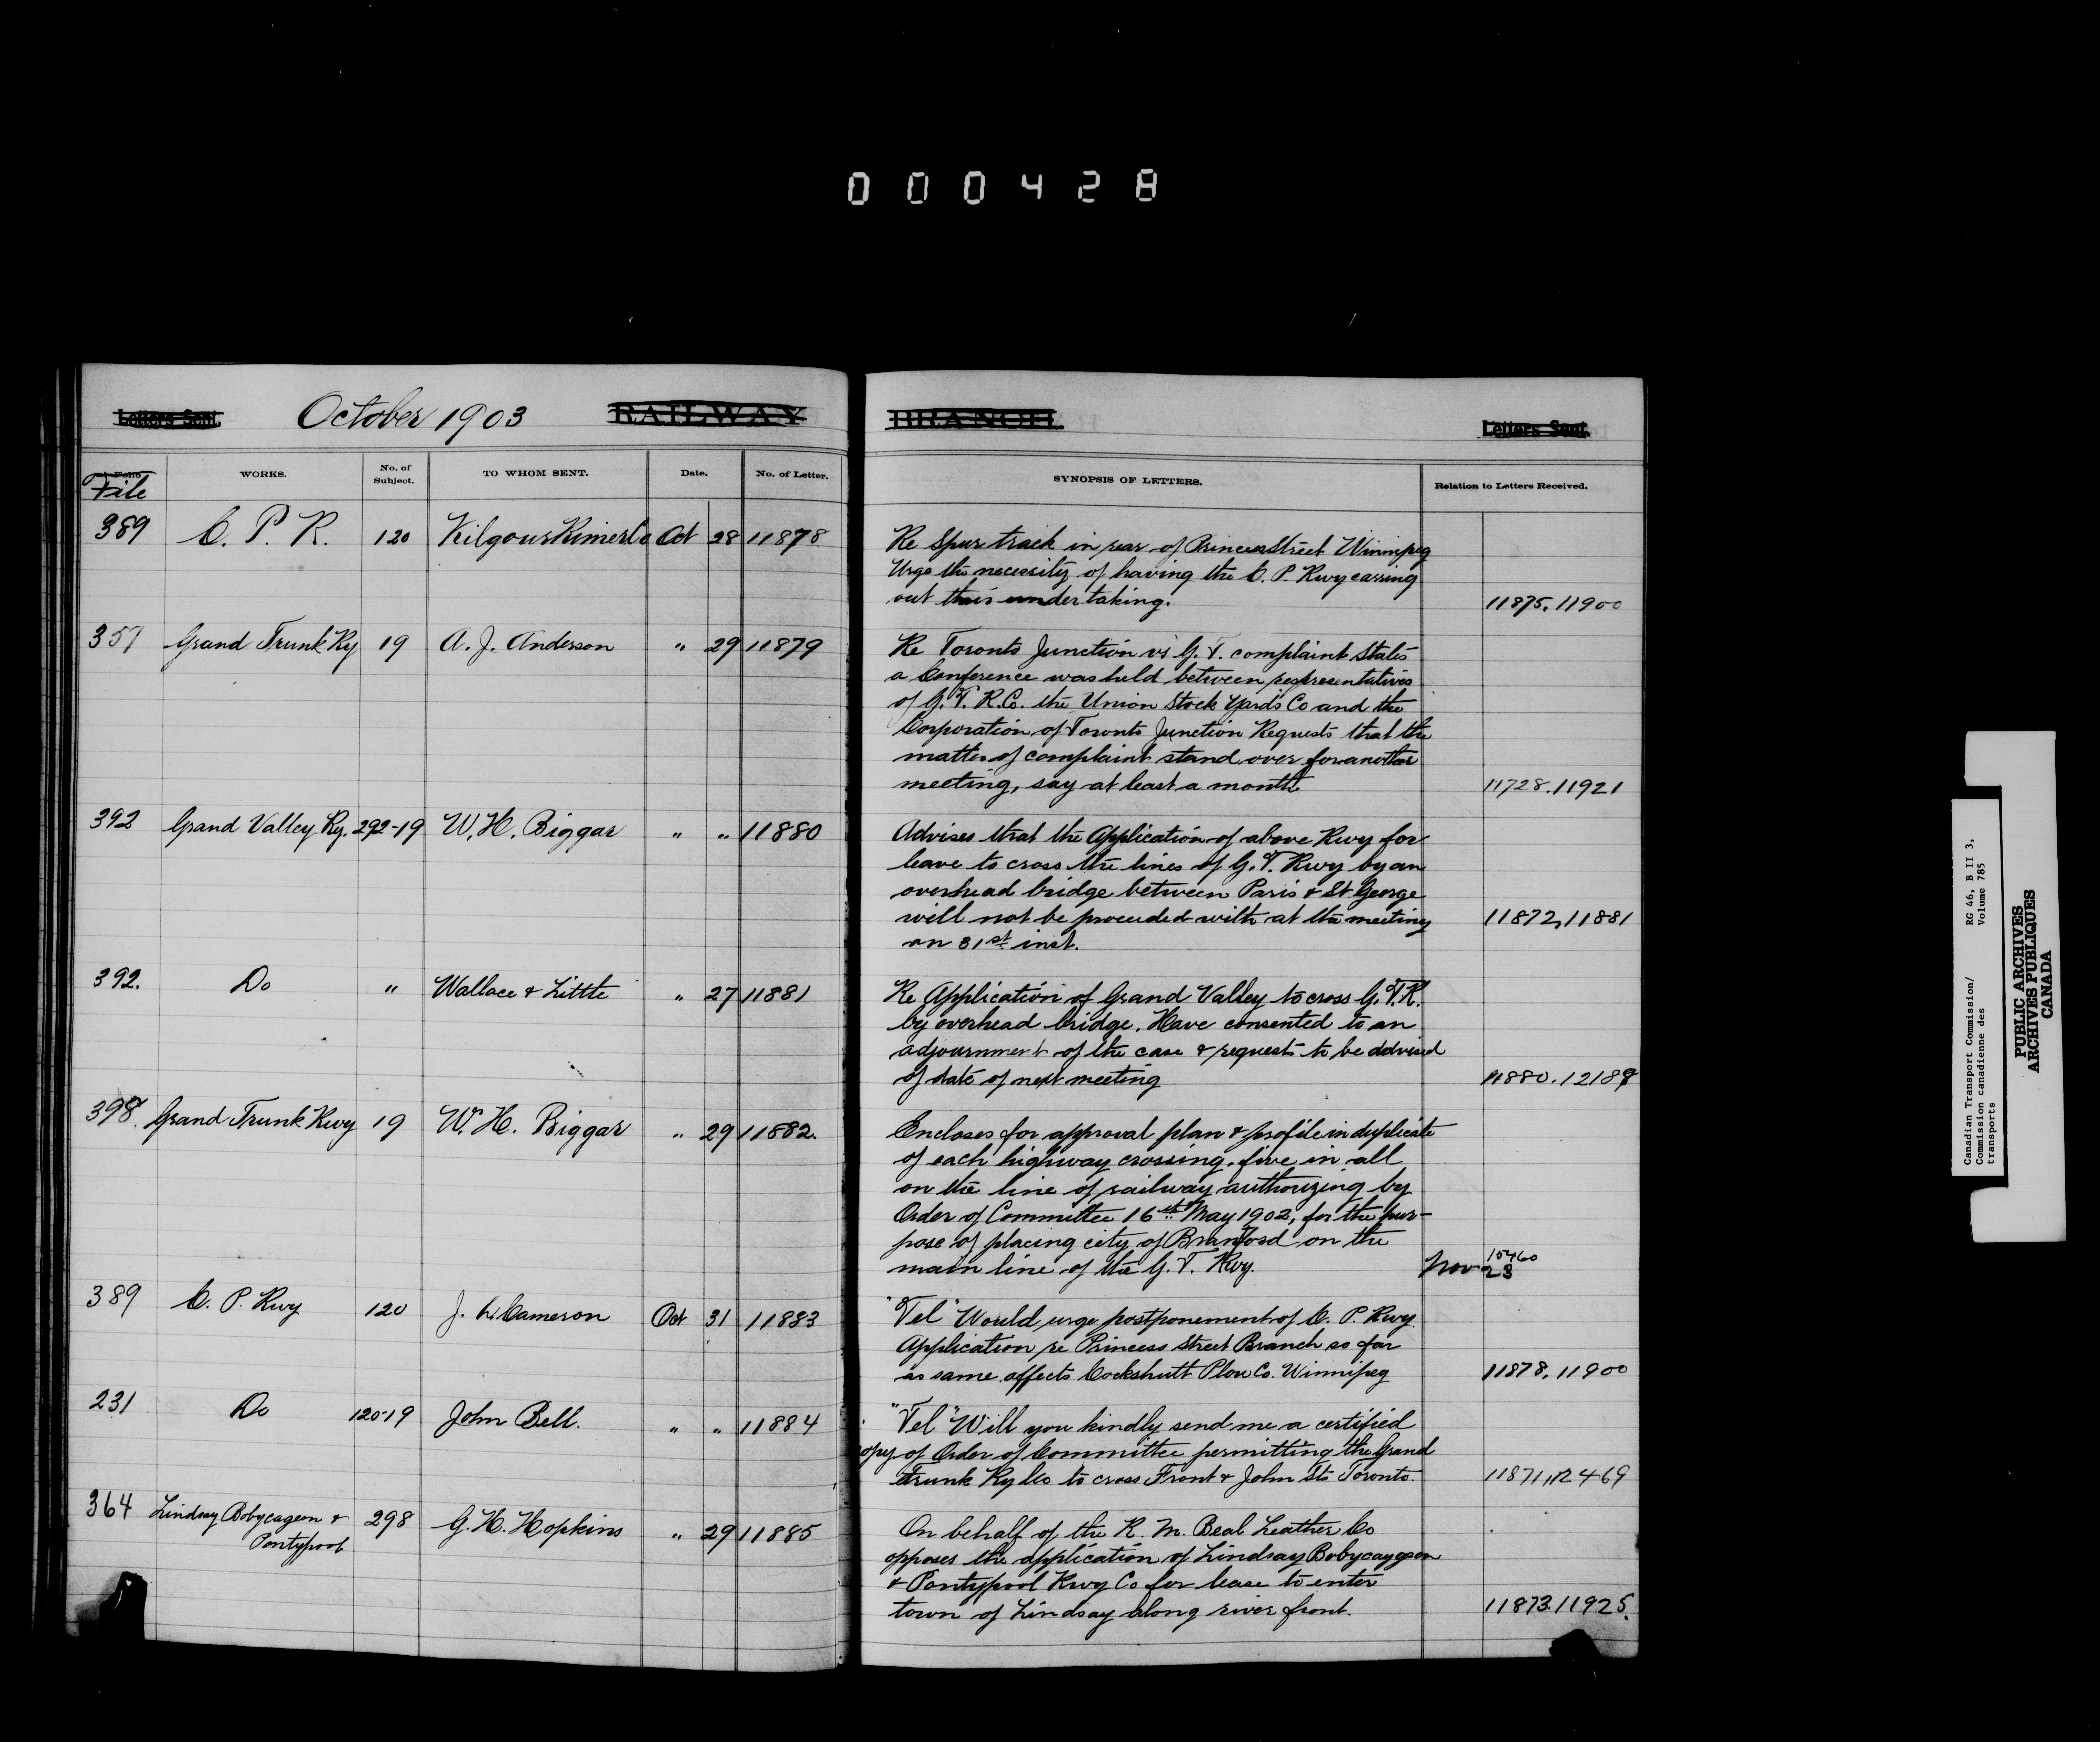 000428
Letters Sent. October 1903 RAILWAY BRANCH Letters Sent.
Folio File WORKS. No. of Subject. TO WHOM SENT. Date. No. of Letter. SYNOPSIS OF LETTERS. Relation to Letters Received.
389 C. P. R. 120 Kilgour Rimer Co Oct 28 11878
Re Spur track in rear of Princess Street Winnipeg
Urge the necessity of having the C. P. Rwy carring
out this undertaking. 11875. 11900
357 Grand Trunk Ry 19 A. J. Anderson " 29 11879
Re Toronto Junction vs G. T. complaint States
a Conference was held between respresentatives
of G. T. R. Co. the Union Stock Yards Co and the
Corporation of Toronto Junction Requests that the
matter of complaint stand over for another
meeting, say at least a month 11728. 11921
392 Grand Valley Ry. 292-19 W. H. Biggar " " 11880
Advises that the Application of above Rwy for
leave to cross the lines of G. T. Rwy by an
overhead bridge between Paris & St George
will not be proceeded with at the meeting 11872, 11881
on 31st inst.
392. Do " Wallace & Little " 27 11881
Re Application of Grand Valley to cross G. T. R.
by overhead bridge. Have consented to an
adjournment of the case & requests to be advised
of date of next meeting 11880.
398. Grand Trunk Rwy 19 W. H. Biggar " 29 11882.
Encloses for approval plan & profile in duplicate
of each highway crossing. five in all
on the line of railway authorizing by
Order of Committee 16th May 1902, for the pur-
pose of placing city of Branford on the
main line of the G. T. Rwy. Nov 23 10460
389 C. P. Rwy 120 J. Cameron Oct 31 11883
"Tel" Would urge postponement of C. P. Rwy
Application re Princess Street Branch so far
as same affects Cockshutt Plow Co. Winnipeg 11878. 11900
231 Do 120-19 John Bell. " " 11884
"Tel" Will you kindly send me a certified
opy of Order of Committee permitting the Grand
Trunk Ry Co to cross Front & John Sts Toronto. 11871, 12469
364 Lindsay Bobycageon & 298 G. H. Hopkins " 29 11885
Pontypool
On behalf of the R. M. Beal Leather Co
opposes the application of Lindsay Bobycaygeon
& Pontypool Rwy Co for lease to enter
town of Lindsay along river front. 11873. 11925.
Canadian Transport Commission/ RG 46, B II 3,
Commission canadienne des Volume 785
transports
PUBLIC ARCHIVES
ARCHIVES PUBLIQUES
CANADA